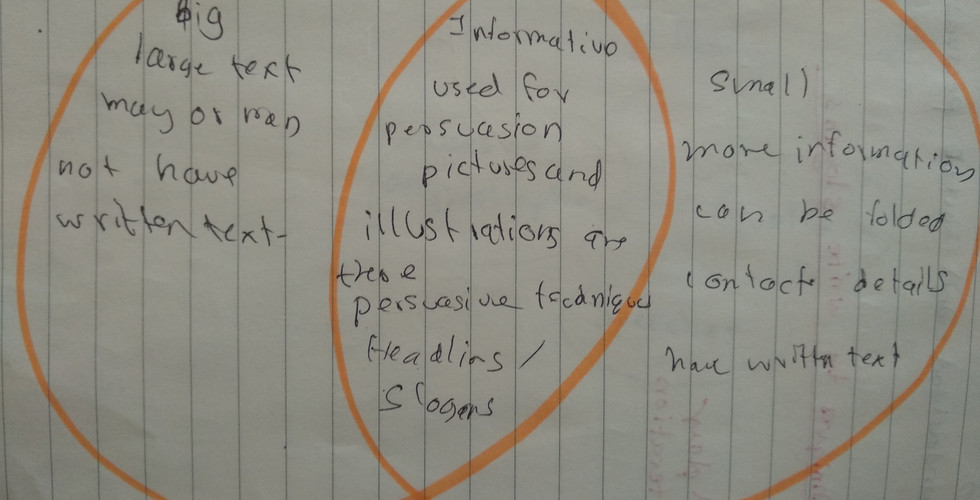 Big
large text
may or may
not have
written text-
Informative
used for
persuasion
pictures and
illustrations are
there
persuasive technique
Headlins /
Slogans
Small
more information
can be folded
contact details
have written text